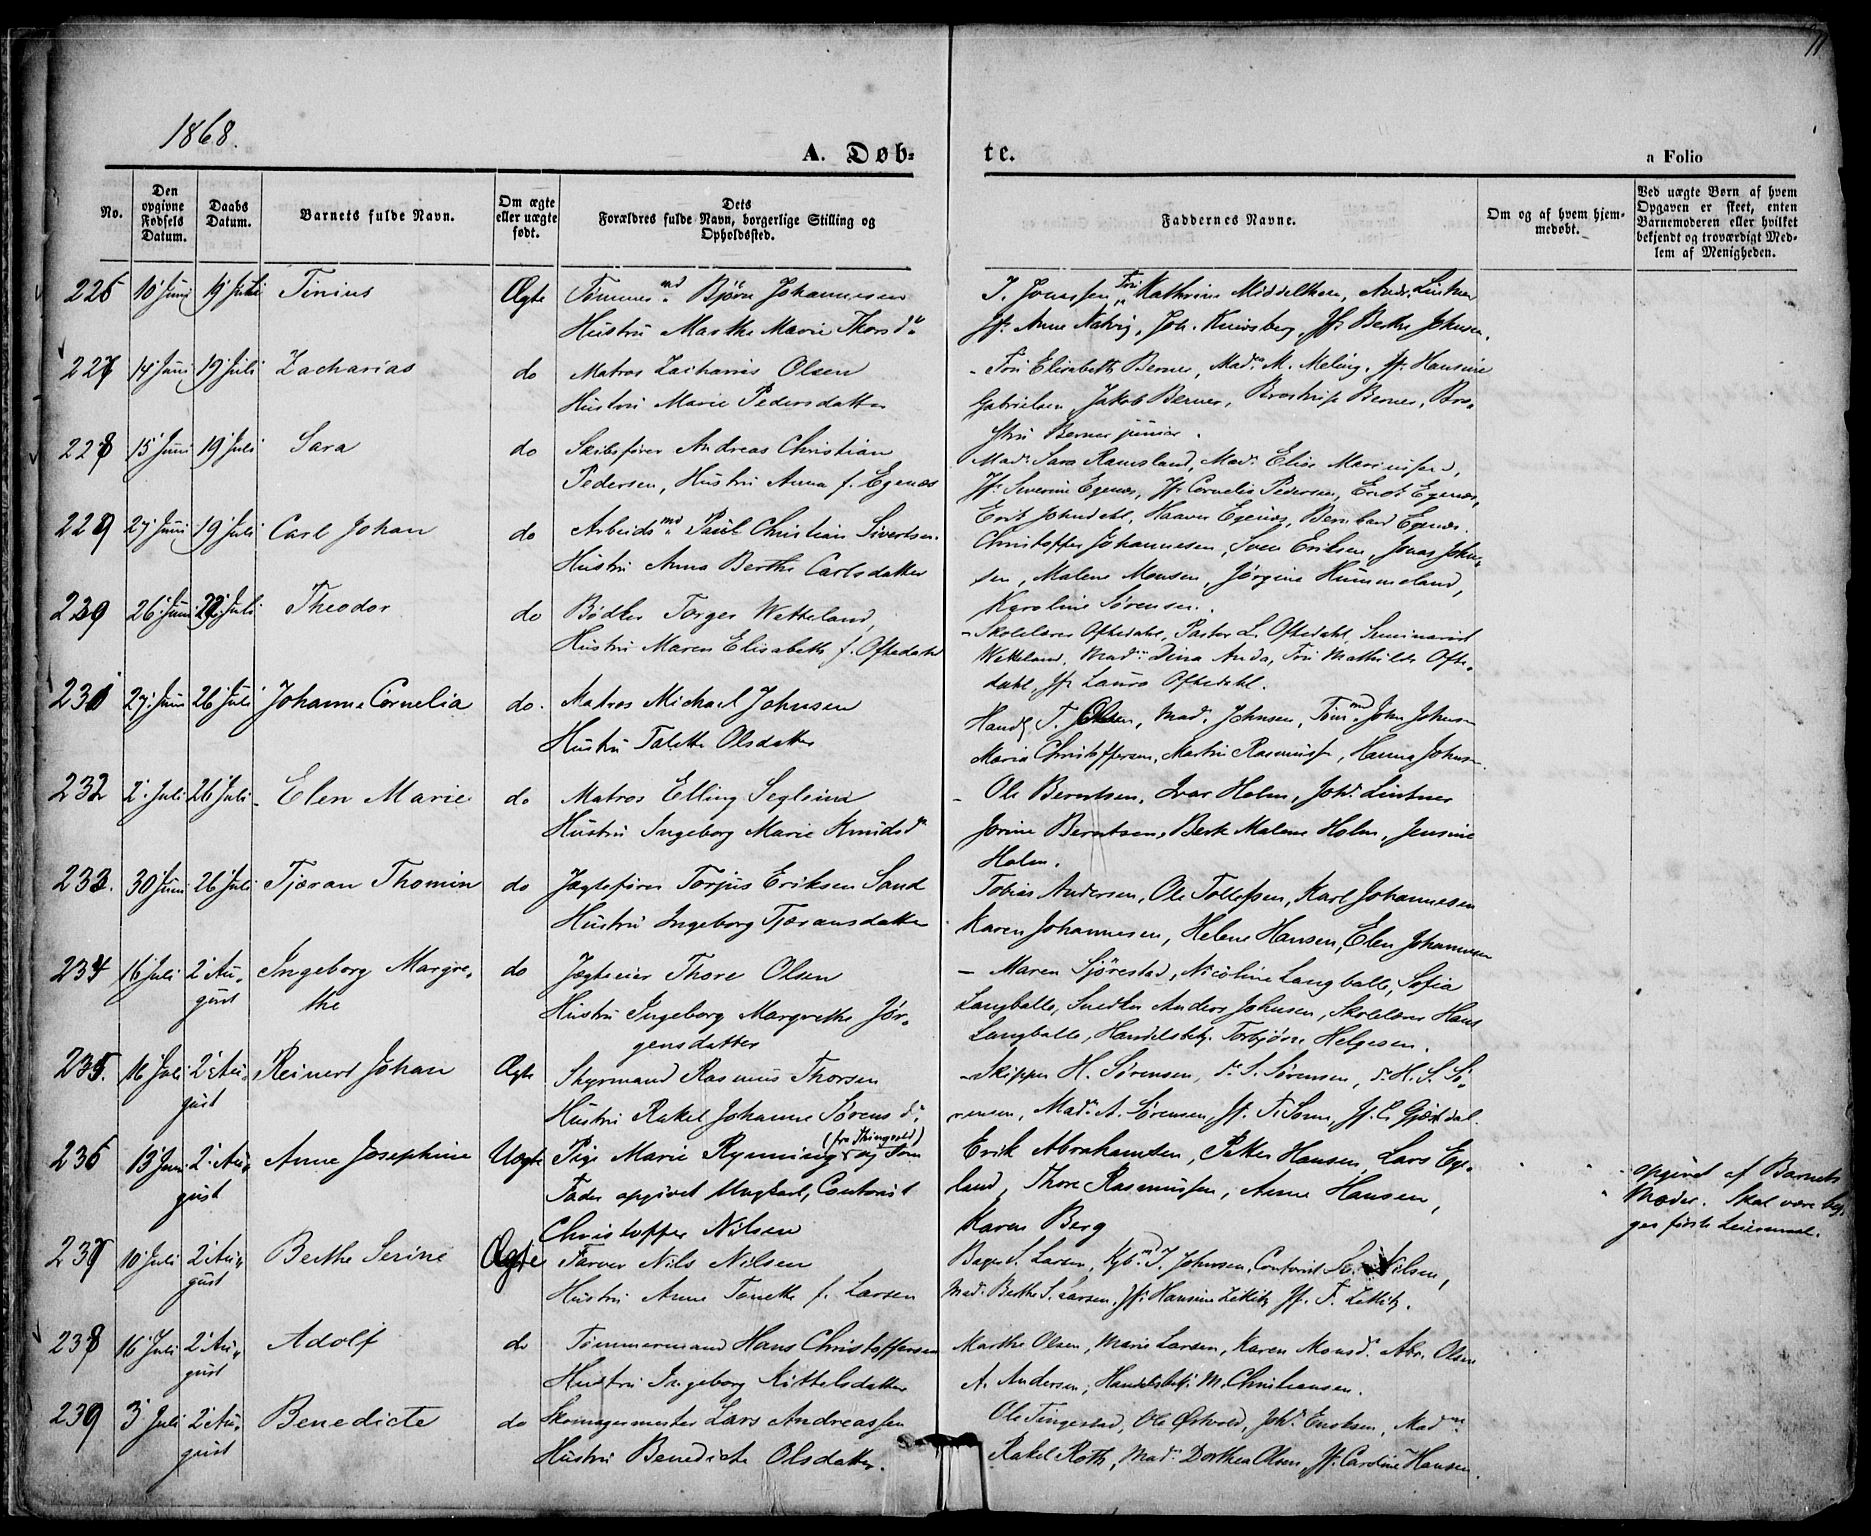 11
1868.
A. Døb-
te.
a Folio
No.
Den opgivne Fødsels Datum.
Daabs Datum.
Barnets fulde Navn.
Om ægte eller uægte født.
Dets Forældres fulde Navn, borgerlige Stilling og Opholdssted.
Faddernes Navne.
Om og af hvem hjemmedøbt.
Ved uægte Børn af hvem Opgaven er skeet, enten Barnemoderen eller hvilket bekjendt og troværdigt Medlem af Menigheden.
226 10 Juni 19 Juli Tinius Ægte Tømmermd. Bjørn Johannesen
Hustru Marthe Marie Thorsd.
J. Jonassen, Frk. Kathrine Middelthon, Andr. Lintner
Jfr. Anne Natvig, Joh. Kneivsberg, Jfr. Berthe Johnsen.
227 14 Juni 19 Juli Zacharias do Matros Zacharias Olsen
Hustru Marie Pedersdatter
Fru Elisabeth Berner, Mad. M. Meling, Jfr. Hansine
Gabrielsen, Jakob Berner, Brostrup Berner, Bro-
strup Berner junior.
228 15 Juni 19 Juli Sara do Skibsfører Andreas Christian
Pedersen, Hustru Anna f. Egenæs
Mad. Sara Ramsland, Mad. Elise
Jfr. Severine Egenæs, Jfr. Cornelia Pedersen, Enok Egenæs,
229 27 Juni 19 Juli Carl Johan do Arbeidsmd. Paul Christian Sivertsen.
Hustru Anna Berthe Carlsdatter
Erik Johndahl, Haaver Egenæs, Bernhard Egenæs.
Christoffer Johannesen, Sven Eriksen, Jonas John-
sen, Malene Monsen, Jørgine Hummeland,
Karoline Sørensen.
230 26 Juni 22 Juli Theodor do Bødker Torger Wetteland,
Hustru Maren Elisabeth f. Oftedahl
Skolelærer Oftedahl, Pastor L. Oftedahl, Seminarist
Wetteland, Mad. Dina Anda, Frk. Mathilde Ofte-
dahl, Jfr. Laura Oftedahl.
231 27 Juni 26 Juli Johanne Cornelia do. Matros Michael Johnsen
Hustru Talette Olsdatter
Handl. T. Olsen, Mad. Johnsen, Tømmd. John Johnsen
Maria Christoffersen, Martin Rasmuss., Hanna Johnsen.
232 2 Juli 26 Juli Elen Marie do Matros Elling Seglem
Hustru Ingeborg Marie Knudsd.
Ole Berntsen, Ivar Holm, Johs. Lintner
Jorine Berntsen, Berte Malene Holm, Jensine
Holm.
233. 30 Juni 26 Juli Tjæran Thomin do Jægtefører Torjus Eriksen Sand
Hustru Ingeborg Tjæransdatter
Tobias Andersen, Ole Tollefsen, Karl Johannesen
Karen Johannesen, Helene Hansen, Elen Johannesen
234 16 Juli 2 Au- Ingeborg Margre- do Jægteeier Thore Olsen
gust the Hustru Ingeborg Margrethe Jør-
gensdatter
Maren Sjørestad, Nicoline Langballe, Sofia
Langballe, Snedker Anders Johnsen, Skolelærer Hans
Langballe, Handelsbetj. Torbjørn Helgesen.
235. 16 Juli 2 Au- Reinert Johan Ægte Styrmand Rasmus Thorsen
gust Hustru Rakel Johanne Sørensd.
Skipper H. Sørensen, do. S. Sørensen, do. H. S. Sø-
rensen, Mad. A. Sørensen, Jfr. T. Sømme, Jfr. C. Gjæsdal.
236 13 Juni 2 Au- Anne Josephine Uægte Pige Marie Rynning (fra Thingvold) og som
gust Fader opgivet Ungkarl, Contorist
Christoffer Nilsen
Erik Abrahamsen, Petter Hansen, Lars Ege-
land, Thore Rasmussen, Anne Hansen,
Karen Berg
opgivet af Barnets
Moder. Skal være beg-
ges første Leiermaal.
237 10 Juli 2 Au- Berthe Serine Ægte Farver Nils Nilsen
gust Hustru Anne Tonette f. Larsen
Bager S. Larsen, Kjbmd. J. Johnsen, Contorist Nilsen,
Mad. Berthe S. Larsen, Jfr. Hansine Zetlitz, Jfr. F. Zetlitz.
238 16 Juli 2 Au- Adolf do Tømmermand Hans Christoffersen
gust Hustru Ingeborg Kittelsdatter
Marthe Olsen, Marie Larsen, Karen Monsd. Abr. Olsen
A. Andersen, Handelsbetj. M. Christiansen.
239 3 Juli 2 Au- Benedicte do Skomagermester Lars Andreassen
gust Hustru Benedicte Olsdatter.
Ole Tingestad, Ole Østvold, Johs. Enoksen, Mad.
Rakel Roth, Mad. Dorthea Olsen, Jfr. Caroline Hansen.